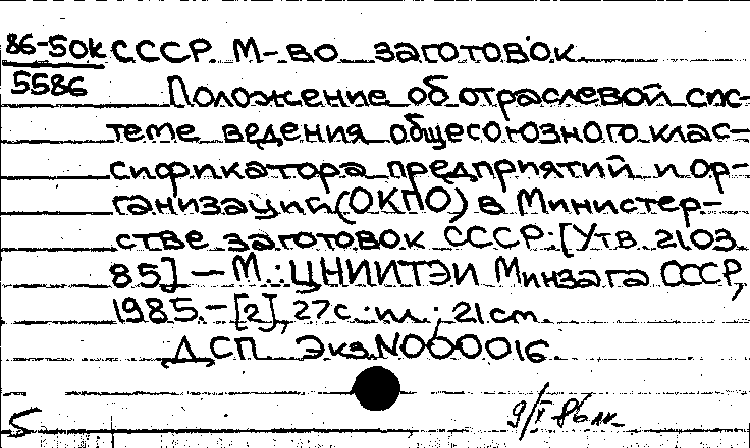 86-50к СССР. М-во заготовок.
5586
Положение об отраслевой сис-
теме ведения общесоюзного клас-
сификатора предприятий и ор-
ганизаций (ОКПО) в Министер-
стве заготовок СССР: [Утв. 21.03.
85] — М.: ЦНИИТЭИ Минзага СССР,
1985. - [2], 27с.: ил.; 21 cm.
ДСП. Экз. N000016.
5 9/I-86